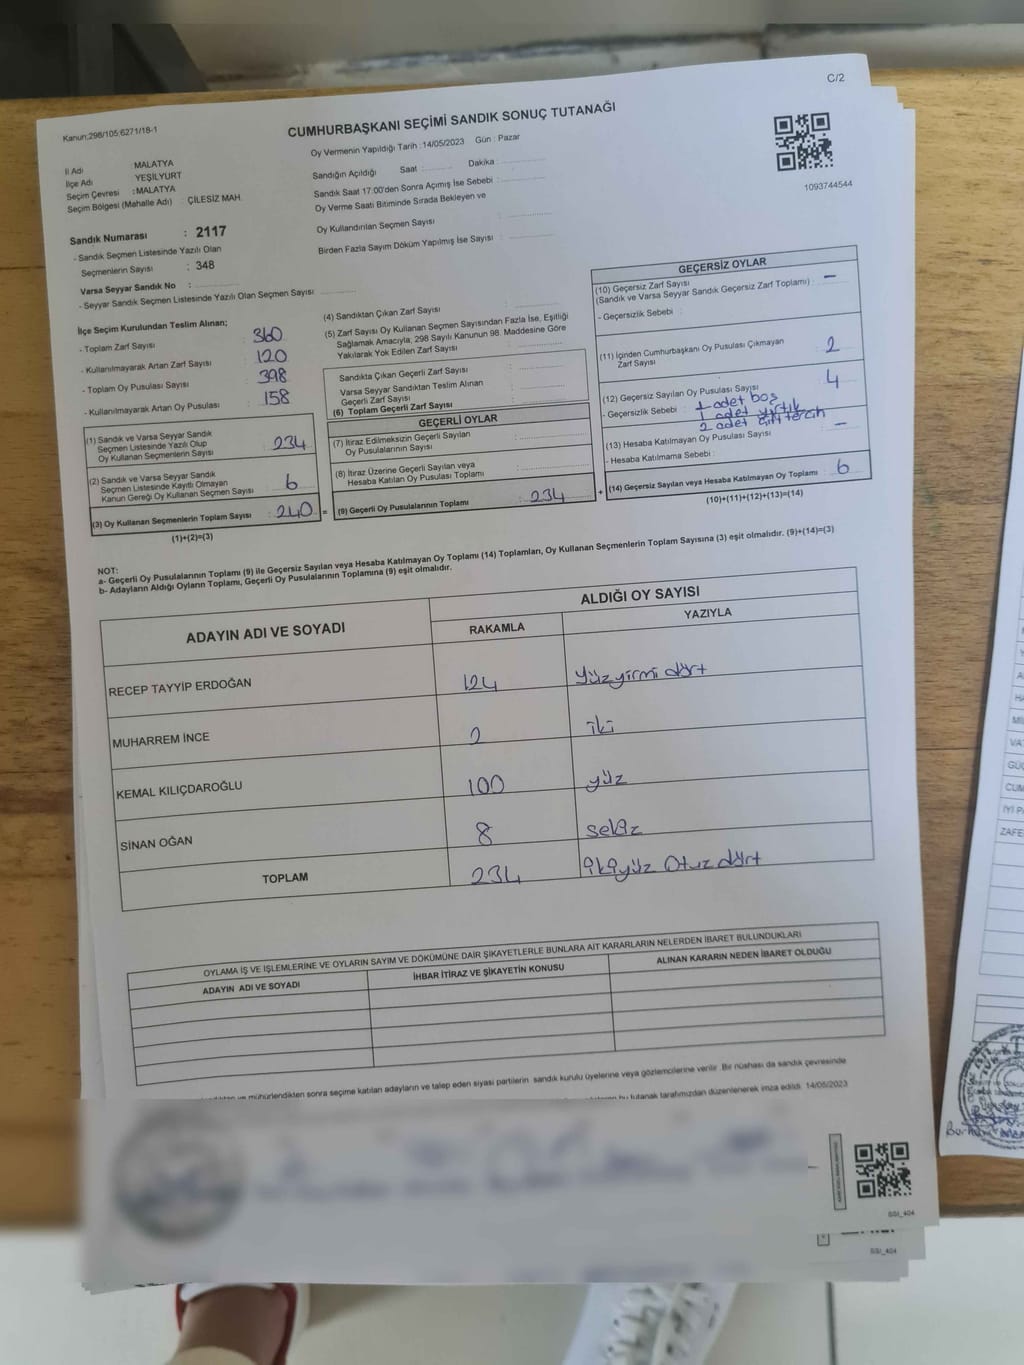 C/2
Kanun;298/105;6271/18-1
CUMHURBAŞKANI SEÇİMİ SANDIK SONUÇ TUTANAĞI
Oy Vermenin Yapıldığı Tarih : 14/05/2023 Gün : Pazar
İl Adı MALATYA
İlçe Adı YEŞİLYURT
Seçim Çevresi : MALATYA
Seçim Bölgesi (Mahalle Adı) : ÇİLESİZ MAH.
Sandığın Açıldığı Saat : Dakika :
Sandık Saat 17:00'den Sonra Açılmış İse Sebebi :
Oy Verme Saati Bitiminde Sırada Bekleyen ve
Oy Kullandırılan Seçmen Sayısı
Birden Fazla Sayım Döküm Yapılmış İse Sayısı :
1093744544
Sandık Numarası : 2117
- Sandık Seçmen Listesinde Yazılı Olan
Seçmenlerin Sayısı : 348
Varsa Seyyar Sandık No :
- Seyyar Sandık Seçmen Listesinde Yazılı Olan Seçmen Sayısı
İlçe Seçim Kurulundan Teslim Alınan;
- Toplam Zarf Sayısı : 360
- Kullanılmayarak Artan Zarf Sayısı : 120
- Toplam Oy Pusulası Sayısı : 398
- Kullanılmayarak Artan Oy Pusulası : 158
(1) Sandık ve Varsa Seyyar Sandık
Seçmen Listesinde Yazılı Olup
Oy Kullanan Seçmenlerin Sayısı : 234
(2) Sandık ve Varsa Seyyar Sandık
Seçmen Listesinde Kayıtlı Olmayan
Kanun Gereği Oy Kullanan Seçmen Sayısı : 6
(3) Oy Kullanan Seçmenlerin Toplam Sayısı : 240 =
(1)+(2)=(3)
(4) Sandıktan Çıkan Zarf Sayısı
(5) Zarf Sayısı Oy Kullanan Seçmen Sayısından Fazla İse, Eşitliği
Sağlamak Amacıyla, 298 Sayılı Kanunun 98. Maddesine Göre
Yakılarak Yok Edilen Zarf Sayısı
Sandıkta Çıkan Geçerli Zarf Sayısı
Varsa Seyyar Sandıktan Teslim Alınan
Geçerli Zarf Sayısı
(6) Toplam Geçerli Zarf Sayısı
GEÇERLİ OYLAR
(7) İtiraz Edilmeksizin Geçerli Sayılan
Oy Pusulasının Sayısı
(8) İtiraz Üzerine Geçerli Sayılan veya
Hesaba Katılan Oy Pusulası Toplamı
(9) Geçerli Oy Pusulalarının Toplamı : 234 +
GEÇERSİZ OYLAR
(10) Geçersiz Zarf Sayısı
(Sandık ve Varsa Seyyar Sandık Geçersiz Zarf Toplamı) : –
- Geçersizlik Sebebi :
(11) İçinden Cumhurbaşkanı Oy Pusulası Çıkmayan
Zarf Sayısı 2
(12) Geçersiz Sayılan Oy Pusulası Sayısı 4
- Geçersizlik Sebebi : 1 adet boş
1 adet yırtık
2 adet çift tercih
(13) Hesaba Katılmayan Oy Pusulası Sayısı –
- Hesaba Katılmama Sebebi :
(14) Geçersiz Sayılan veya Hesaba Katılmayan Oy Toplamı : 6
(10)+(11)+(12)+(13)=(14)
NOT:
a- Geçerli Oy Pusulalarının Toplamı (9) ile Geçersiz Sayılan veya Hesaba Katılmayan Oy Toplamı (14) Toplamları, Oy Kullanan Seçmenlerin Toplam Sayısına (3) eşit olmalıdır. (9)+(14)=(3)
b- Adayların Aldığı Oyların Toplamı, Geçerli Oy Pusulalarının Toplamına (9) eşit olmalıdır.
ADAYIN ADI VE SOYADI
ALDIĞI OY SAYISI
RAKAMLA YAZIYLA
RECEP TAYYİP ERDOĞAN 124 Yüzyirmi dört
MUHARREM İNCE 2 iki
KEMAL KILIÇDAROĞLU 100 yüz
SİNAN OĞAN 8 sekiz
TOPLAM 234 ikiyüz otuz dört
OYLAMA İŞ VE İŞLEMLERİNE VE OYLARIN SAYIM VE DÖKÜMÜNE DAİR ŞİKAYETLERLE BUNLARA AİT KARARLARIN NELERDEN İBARET BULUNDUKLARI
ADAYIN ADI VE SOYADI İHBAR İTİRAZ VE ŞİKAYETİN KONUSU ALINAN KARARIN NEDEN İBARET OLDUĞU
ve mühürlendikten sonra seçime katılan adayların ve talep eden siyasi partilerin sandık kurulu üyelerine veya gözlemcilerine verilir. Bir nüshası da sandık çevresinde
bu tutanak tarafımızdan düzenlenerek imza edildi. 14/05/2023
SSI_404
SSI_404
VAT
GÜÇ
CUM
İYİ P
ZAFE